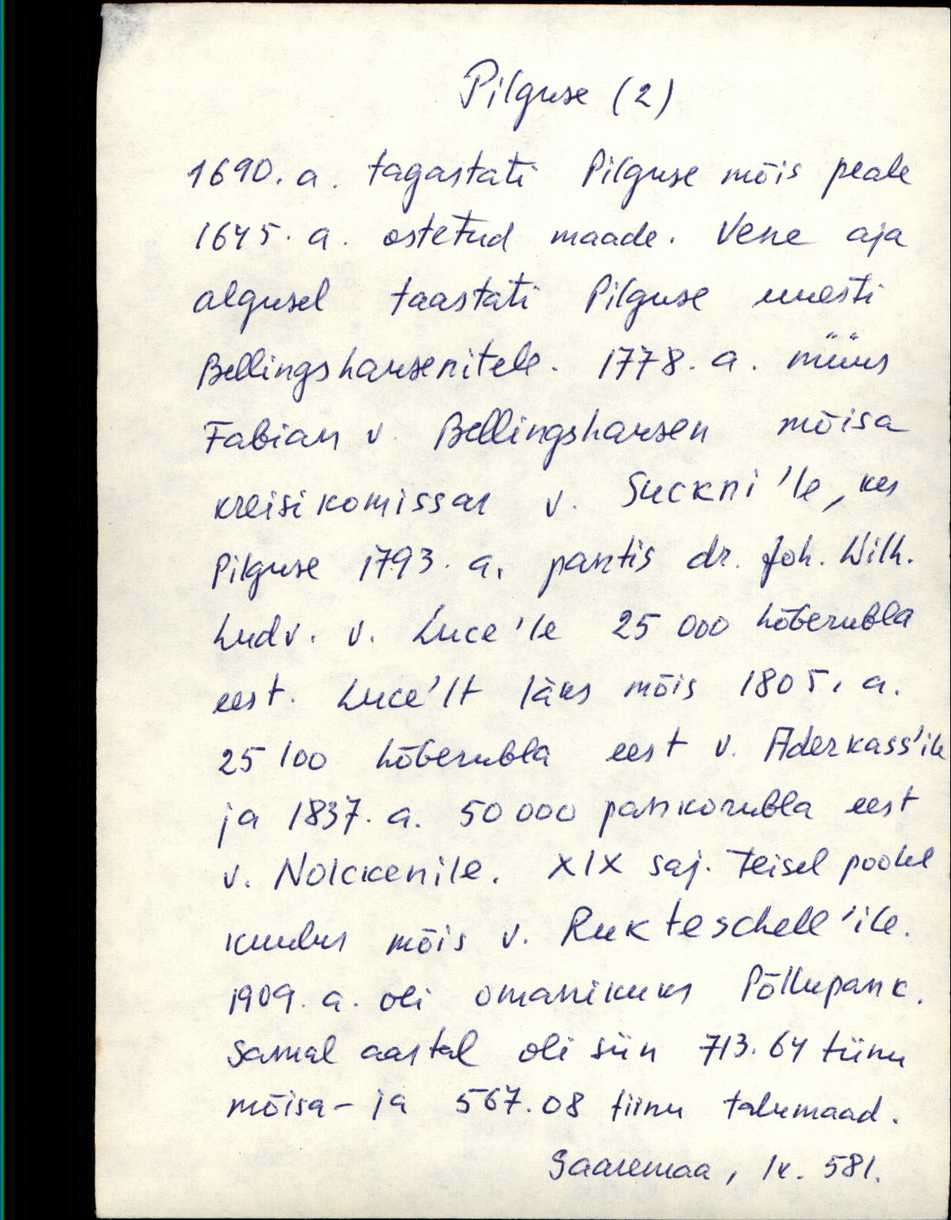 Pilguse (2)
1690. a. tagastati Pilguse mõis peale
1645. a. ostetud maade. Vene aja
algusel taastati Pilguse uuesti
Bellingshausenitele. 1778. a. müüs
Fabian v. Bellingshausen mõisa
kreisikomissar v. Suckni'le, kes
Pilguse 1793. a. pantis dr. Joh. Wilh.
Ludv. v. Luce'le 25 000 hõberubla
eest. Luce'lt läks mõis 1805. a.
25 100 hõberubla eest v. Aderkass'ile
ja 1837. a. 50 000 pankorubla eest
v. Nolckenile. XIX saj. teisel poolel
kuulus mõis v. Rukteschell'ile.
1909. a. oli omanikuks Põllupank.
Samal aastal oli siin 713.64 tiinu
mõisa- ja 567.08 tiinu talumaad.
Saaremaa, lk. 581.